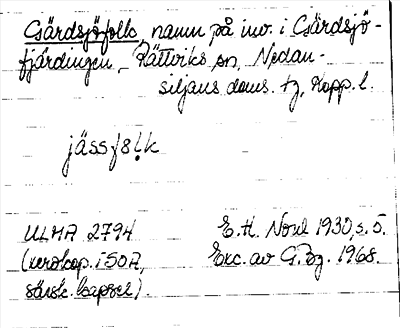 Gärdsjöfolk, namn på inv. i Gärdsjö-
fjärdingen, Rättviks sn, Nedan-
siljans doms. tg, Kopp. l.
jässfolk
ULMA 2794
(xerokop. i 50A,
särsk. kapsel).
E.H. Norel 1930, s. 5.
Exc. av G.Bg. 1968.